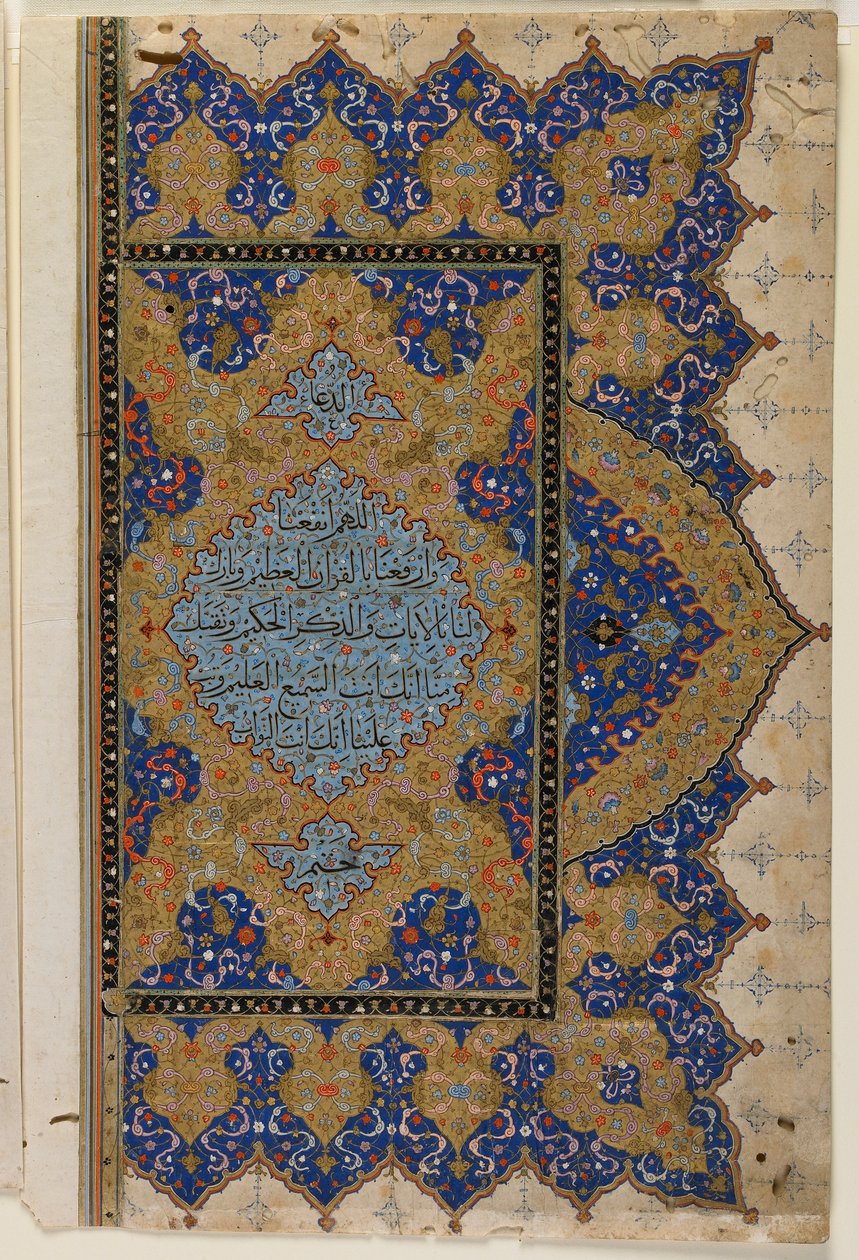 الدعا
اللهم انفعنا
وارفعنا بالقران العظيم وبارك
لنا بالايات والذكر الحكيم وتقبل
منا انك انت السميع العليم وتب
علينا انك انت التواب
ختم